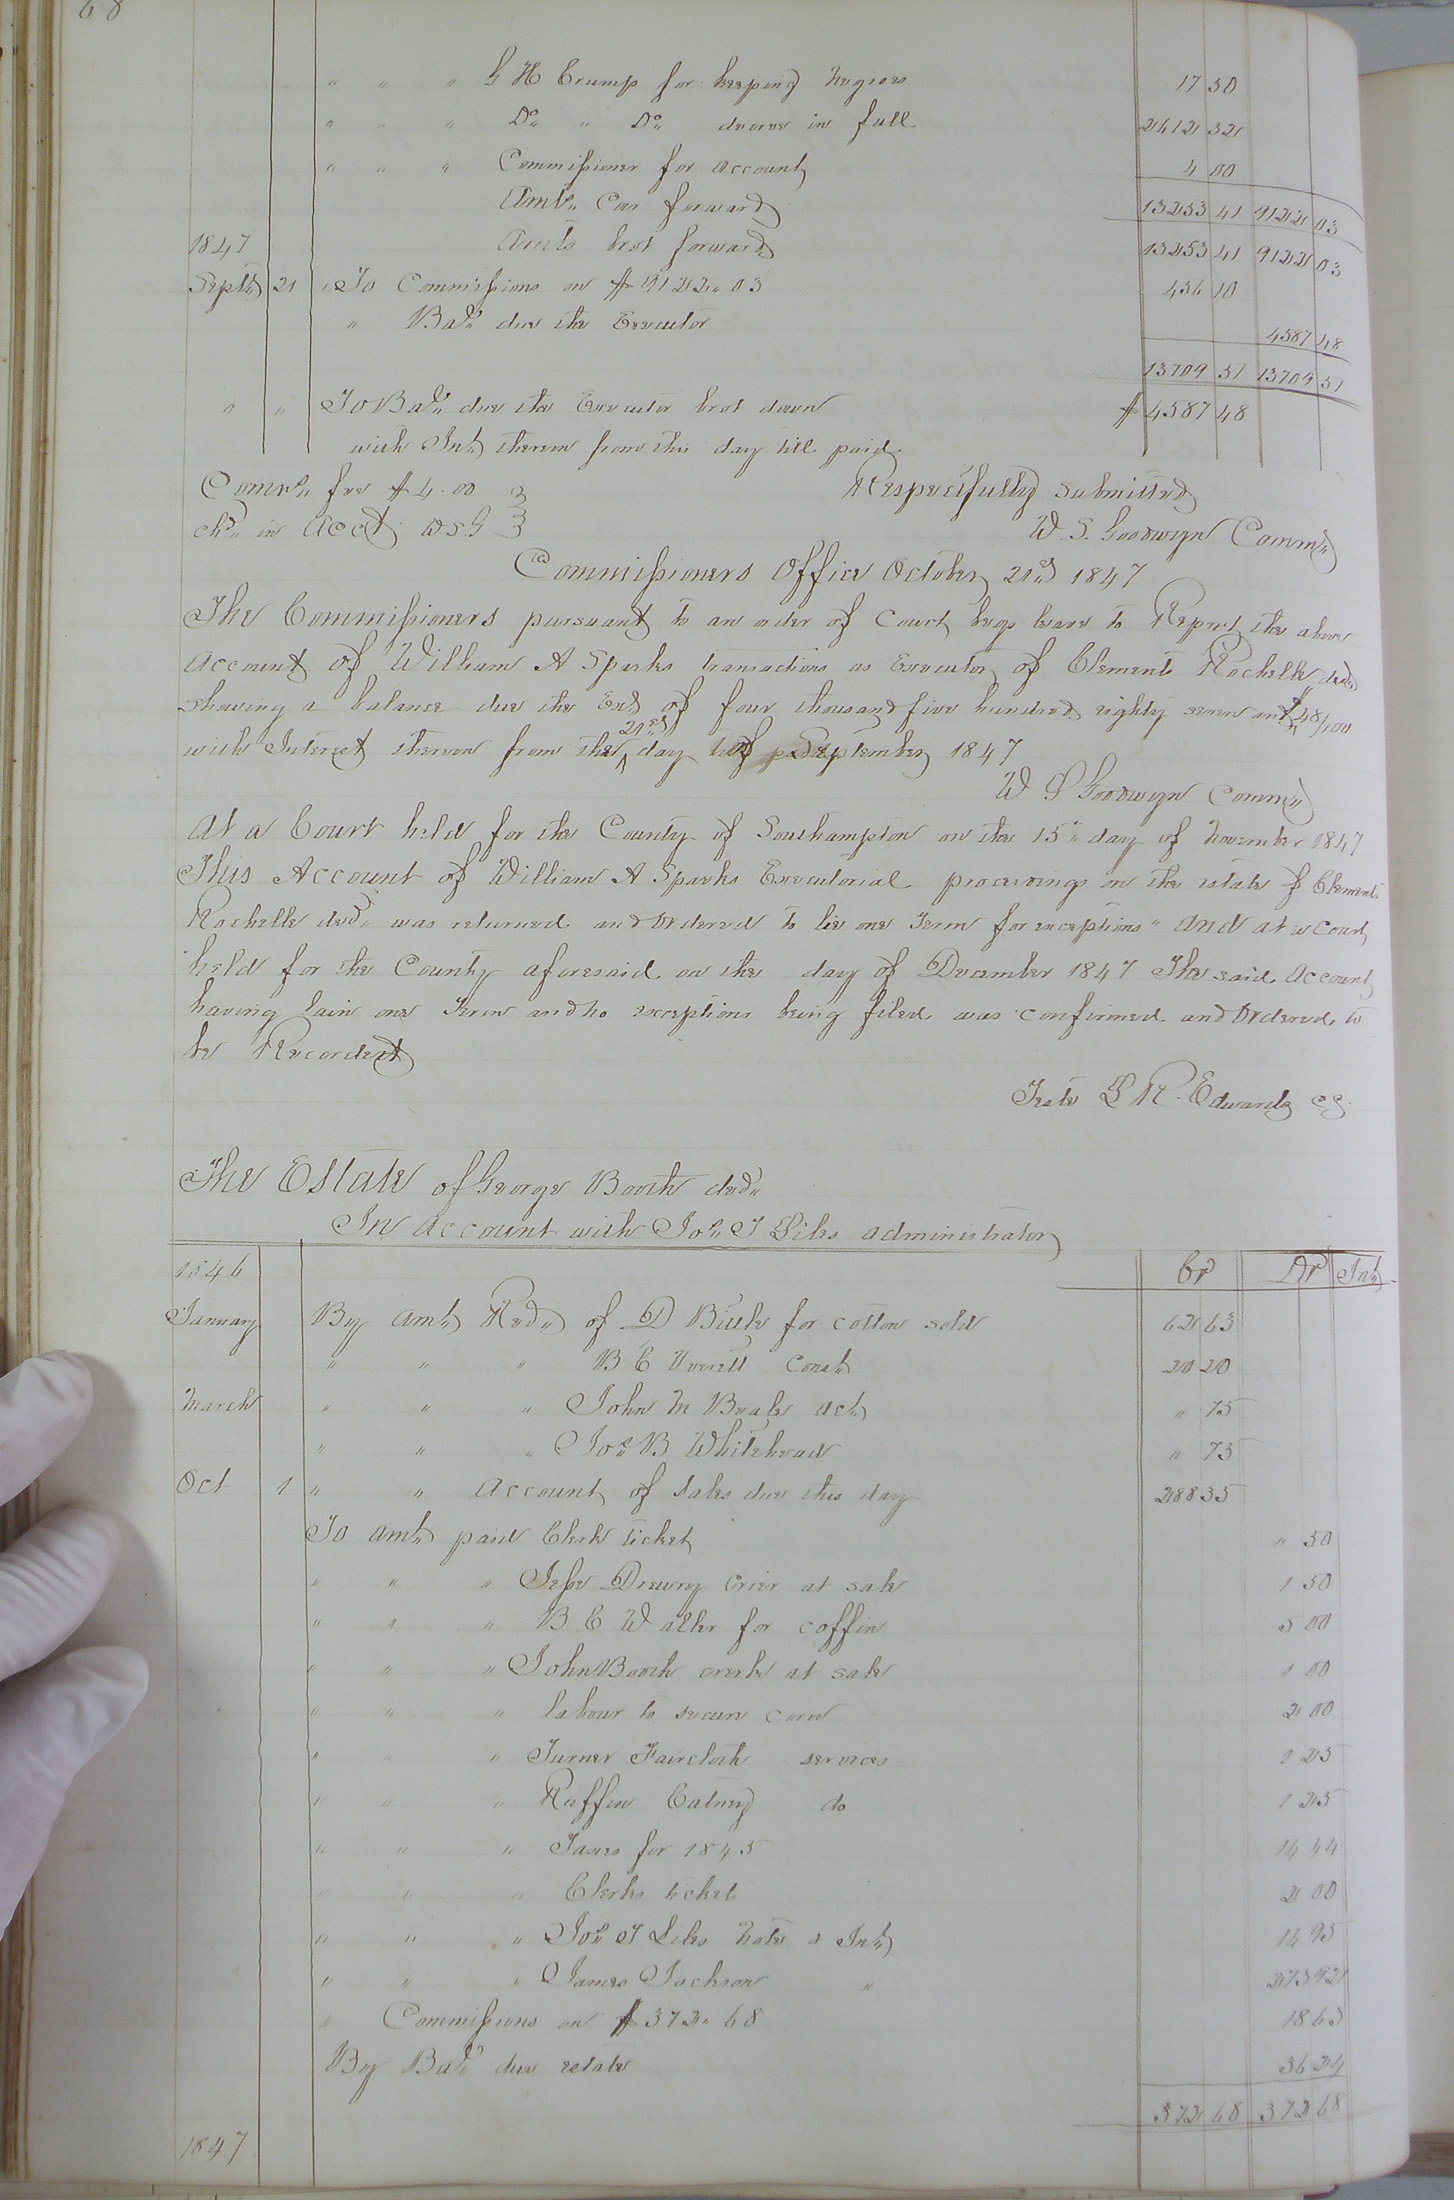 68
" " " G H Crump for keeping Negroes 17 50
" " " Do " Do decree in full 2612 32
" " " Commissioner for account 4 00
Amts Car forward 13253 41 9122 03
1847 Amts brot forward 13253 41 9122 03
Septr 21 " To Commissions on $9122.03 456 10
" Bale due the Executor 4587 48
13709 51 13709 51
" " To Bale due the Executor brot down $4587 48
with Int thereon from this day till paid
Comrs fee $4.00 Respectfully Submitted
chd in Acct W.S.G W. S. Goodwyn Commr
Commissioners Office October 21st 1847
The Commissioners pursuant to an order of Court begs leave to Report the above
Account of William A Sparks transactions as Executor of Clements Rochelle decd
Showing a balance due the Exr of four thousand five hundred eighty seven and 48/100
with Interest thereon from the 21st day of September 1847
W S Goodwyn Commr
At a Court held for the County of Southampton on the 15" day of November 1847
This Account of William A Sparks Executorial proceedings on the estate of Clements
Rochelle decd was returned and Ordered to lie one Term for exceptions" And at a Court
held for the County aforesaid on the day of December 1847 The said Account
having lain one Term and no exceptions being filed was confirmed and Ordered to
be Recorded
Teste L R. Edwards CC
The Estate of George Booth decd
In Account with Jos T Liles Administrator
1846 Cr Dr Int
January By Amt Recd of D Buik for cotton sold 62 63
" " " B C Uvrell Const 20 20
March " " " John M Beale Act " 75
" " " Jos B Whitehead " 75
Oct 1 " " Account of Sales due this day 288 35
To Amt paid Clerk ticket " 50
" " " Jesse Drewry Crier at sale 1 50
" " " B C Waller for coffin 5 00
" " " John Booth clerk at sale 1 00
" " " labour to secure corn 2 00
" " " Turner Faircloth services 1 25
" " " Ruffin Gatney do 1 25
" " " Taxes for 1845 14 44
" " " Clerks tickets 2 00
" " " Jos T Liles Note & Int 14 95
" " " James Jackson " 273 92
" Commissions on $372.68 18 63
By Bale due estate 36 24
372 68 372 68
1847